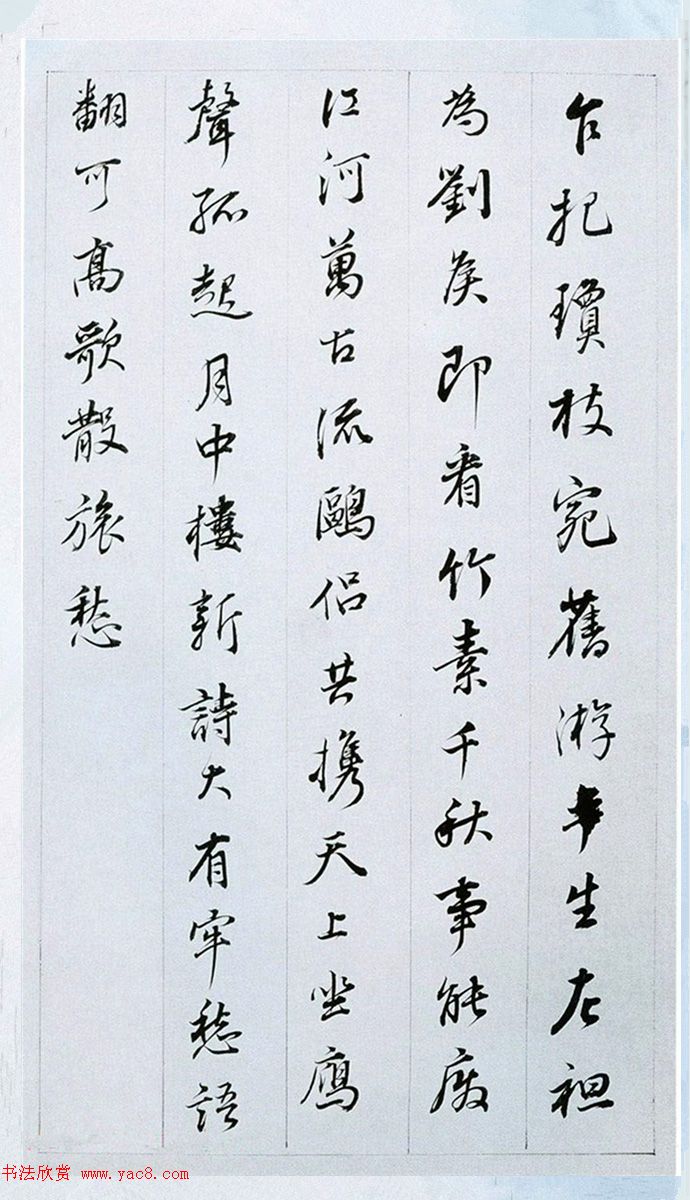 乍把瓊枝宛舊游半生左袒
為劉侯即看竹素千秋事能廢
江河萬古流鷗侶共攜天上坐鴈
聲孤起月中樓新詩大有牢愁語
翻可高歌散旅愁
书法欣赏 www.yac8.com